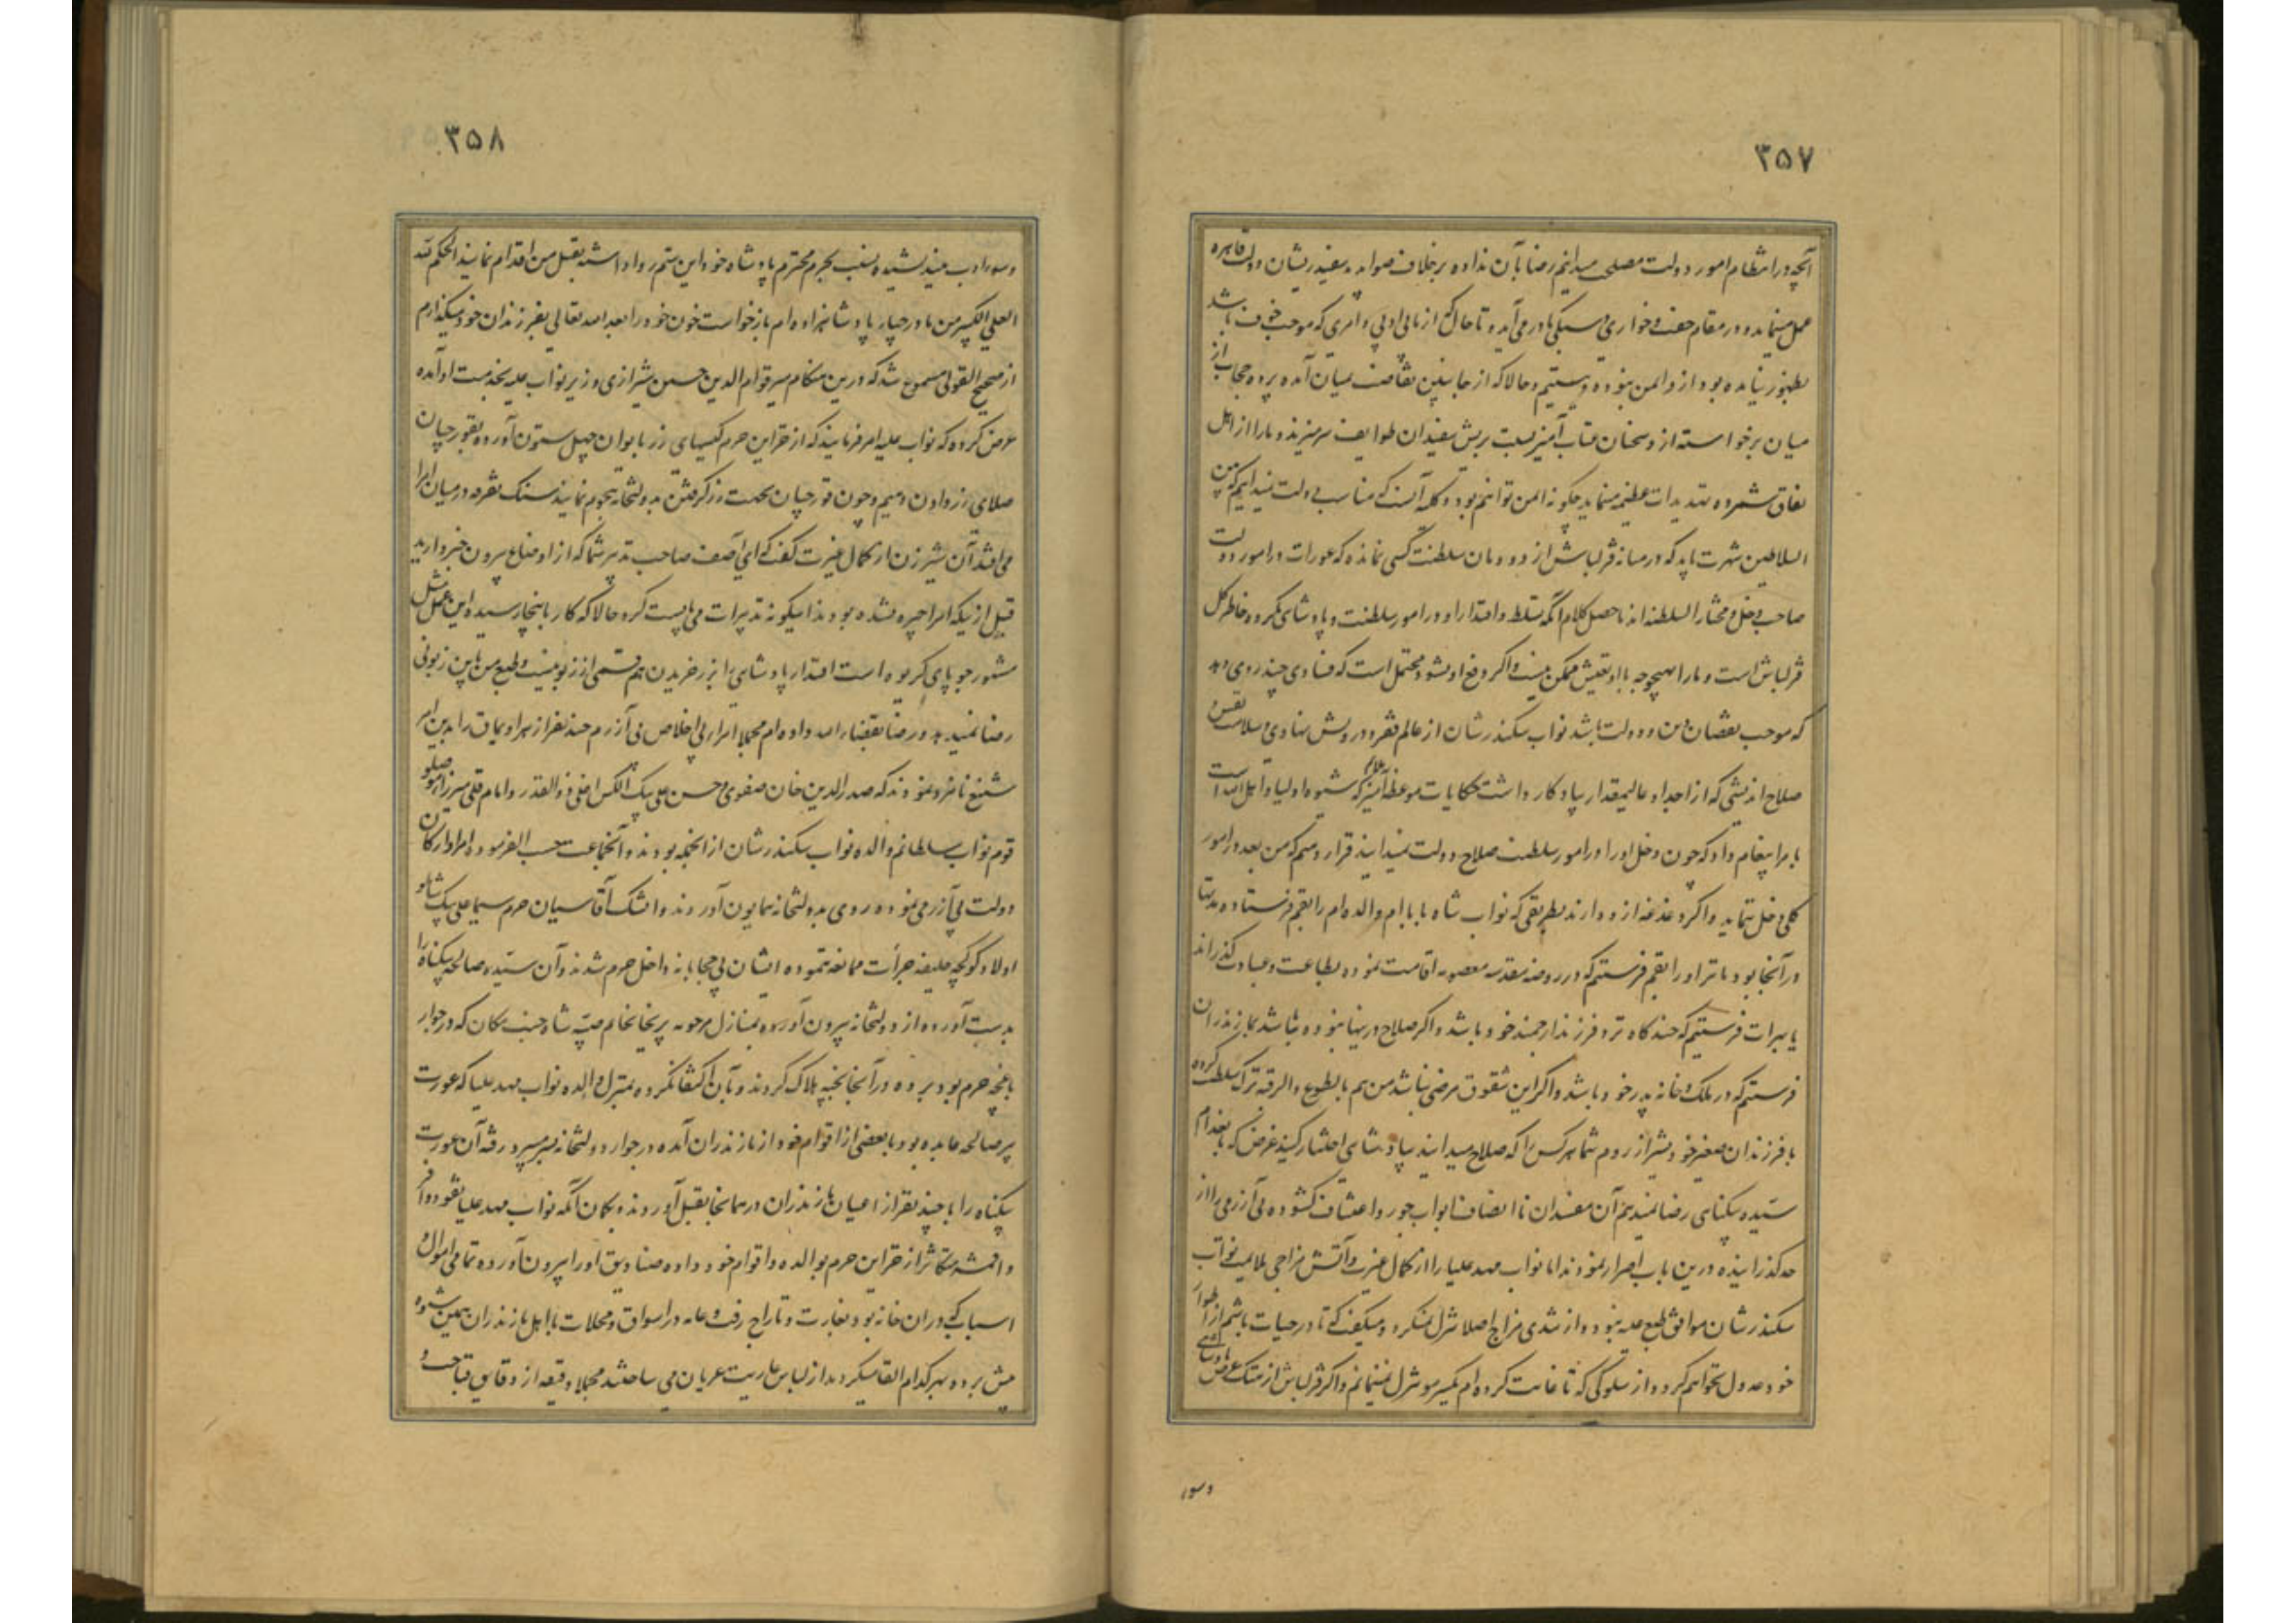 ۳۵۷
آنچه در انتظام امور دولت مصلحت میدانیم رضا بآن نداده برخلاف صوابدید سفیدریشان دولت قاهره
عمل مینماید و در مقام خفت و خواری و سبکی ما در می‌آید و تا حال که از ما بی ادبی و امری که موجب خوف باشد
بظهور نیامده بود از و ایمن نبوده و نیستیم و حالا که از جانبین نقاضت بمیان آمده پرده حجاب از
میان برخواسته از و سخنان عتاب آمیز نسبت بریش سفیدان طوایف سر میزند و ما را از اهل
نفاق شمرده تهدیدات عظیمه مینماید چگونه ایمن توانیم بود و کله آنست که مناسب دولت نمیدانیم که بین
السلاطین شهرت یابد که در میانه قزلباش از دودمان سلطنت کسی نمانده که عورات در امور دولت
صاحب دخل و مختار السلطنه اند ماحصل کلام آنکه تسلط و اقتدار او در امور سلطنت و پادشاهی مکروه خاطر کل
قزلباش است و ما را بهیچوجه با او تعیش ممکن نیست و اگر دفع او نشود محتمل است که فسادی چند روی دهد
که موجب نقصان دین و دولت باشد نواب سکندرشان از عالم فقر و درویش نهادی و سلامت نفس
صلاح اندیشی که از اجداد عالیمقدار یادکار داشت حکایات موعظه آمیز که شیوه اولیا و اهل الله است
بامرا پیغام داد که چون دخل او را در امور سلطنت صلاح دولت نمیدانید قرار دهیم که من بعد در امور
کلی دخل ننماید و اگر دغدغه از و دارند بطریقی که نواب شاه بابا ام والده ام را بقم فرستاده مدتها
در آنجا بود ما نیز او را بقم فرستیم که در روضه مقدسه معصومه اقامت نموده بطاعت و عبادت گذراند
یا بهرات فرستیم که چندگاه نزد فرزند ارجمند خود باشد و اگر صلاح در اینها نبوده باشد بمازندران
فرستیم که در ملک و خانه پدر خود باشد و اگر این شقوق مرضی نباشد من هم بالطوع والرغبه ترک سلطنت کرده
با فرزندان صغیر خود بشیراز روم شما هر کس را که صلاح میدانید بپادشاهی اختیار کنید غرض که باعدام
سیده بیکناهی رضا نمیدهم آن مفسدان نا انصاف ابواب جور و اعتساف کشوده بی آزرمی را از
حد گذرانیده درین باب اصرار نمودند اما نواب مهد علیا را از کمال غیرت و آتش مزاجی ملایمت نواب
سکندرشان موافق طبع علیه نبود و از تندی مزاج اصلا تنزل نمیکرد و میگفت که تا در حیات باشم از اطوار
خود عدول نخواهم کرد و از سلوکی که تا غایت کرده ام یکسر مو تنزل نمینمایم و اگر قزلباش از هتک عرض پادشاهی
وسوء
۳۵۸
وسوء ادب نیندیشیده نسبت بحرم محترم پادشاه خود این ستم روا داشته بقتل من اقدام نمایند الحکم لله
العلی الکبیر من مادر چهار پادشاهزاده ام بازخواست خون خود را بعد الله تعالی بفرزندان خود میگذارم
از صحیح القولی مسموع شد که در این هنگام میر قوام الدین حسین شیرازی وزیر نواب علیه بخدمت او آمده
عرض کرده که نواب علیه امر فرمایند که از خزاین حرم کیسهای زر بایوان چهل ستون آورده بقورچیان
صلای زر دادن دهیم و چون قورچیان بجهت زر گرفتن بدولتخانه هجوم نمایند سنگ تفرقه در میان امرا
می افتد آن شیرزن از کمال غیرت گفت که ای آصف صاحب تدبیر شما که از اوضاع بیرون خبر دارید
قبل از اینکه امرا چیره نشده بودند اینگونه تدبیرات می بایست کرد حالا که کار باینجا رسیده این عمل مثل
مشهور جو پای کریوه است اقتدار پادشاهی را بزر خریدن هم قسمی از زبونیست و طبع من باین زبونی
رضا نمیدهد و رضا بقضاء الله داده ام مجملا امرای بی اخلاص بی آزرم چند نفر از هر اویماق را بدین امر
شنیع نامزد نمودند که صدرالدین خان صفوی و حسن علی بیک الکسن اغلی ذوالقدر و امام قلی میرزا موصلو
قوم نواب سلطانم والده نواب سکندرشان از آنجمله بودند و آنجماعت حسب الفرموده امرا و ارکان
دولت بی آزرمی نموده روی بدولتخانه همایون آوردند و ایشک آقاسیان حرم سیما علی بیک شاملو
اولاد کوکجه خلیفه جرأت ممانعه ننموده ایشان بی محابا بانه داخل حرم شدند و آن سیده صالحه بیکناه را
بدست آورده از دولتخانه بیرون آورده بمنازل مرحومه پریخانخانم بنت شاه جنت مکان که در جوار
باغچه حرم بود برده در آنجا بخبه هلاک کردند و بآن اکتفا نکرده بمنزل والده نواب مهد علیا که عورت
پیر صالحه عابده بود با بعضی از اقوام خود از مازندران آمده در جوار دولتخانه بسر میبرد رفته آن عورت
بیکناه را با چند نفر از اعیان مازندران در همانجا بقتل آوردند و بکمان آنکه نواب مهد علیا نقود وافر
و اقمشه متکاثر از خزاین حرم بوالده و اقوام خود داده صنادیق او را بیرون آورده تمامی اموال و
اسباب که در آن خانه بود بغارت و تاراج رفت و عامه در اسواق و محلات با اهل مازندران همین شیوه
پیش برده بهر کدام القا میکردند از لباس عاریت عریان می ساختند مجملا دقیقه از دقایق قباحت و